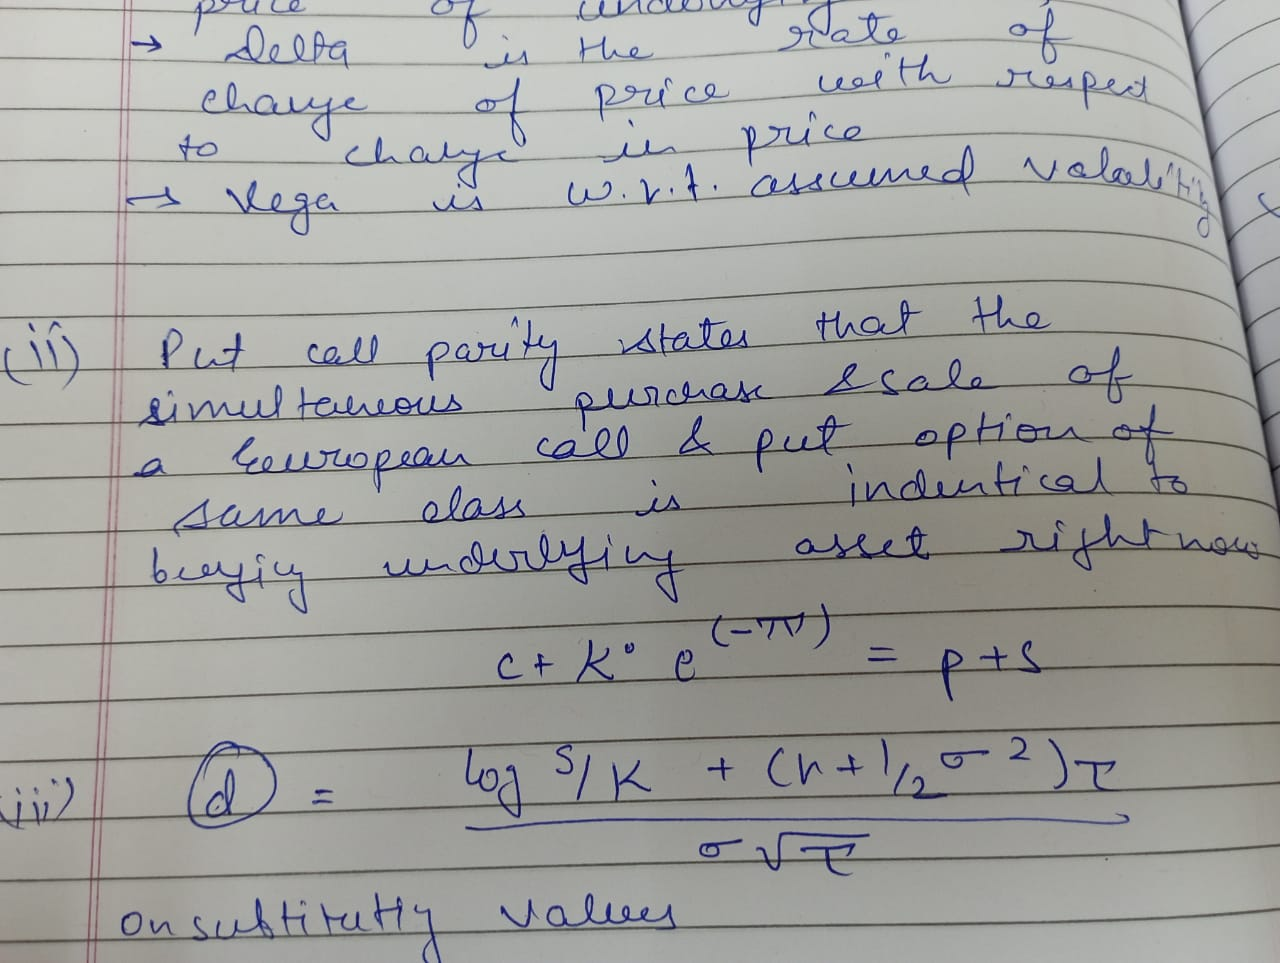 price of underlying
→ Delta is the rate of
change of price with respect
to change in price
→ Vega is w.r.t. assumed volality
(ii) Put call parity states that the
simultaneous purchase & sale of
a Eeuropean call & put option of
same class is indentical to
buying underlying asset right now
c + K° e^(-πr) = p+s
iii) d = (log S/K + (r + 1/2 σ²)τ) / (σ√τ)
on subtituttg values